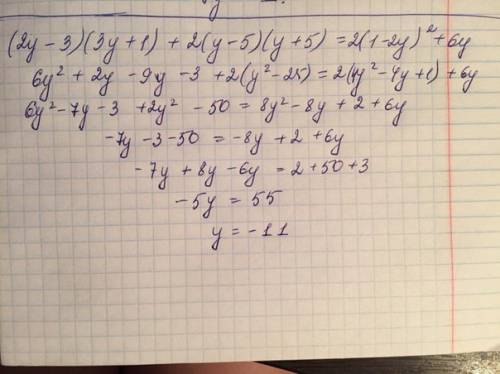 (2y-3)(3y+1) + 2(y-5)(y+5) = 2(1-2y)² + 6y
6y² + 2y - 9y - 3 + 2(y² - 25) = 2(4y² - 4y + 1) + 6y
6y² - 7y - 3 + 2y² - 50 = 8y² - 8y + 2 + 6y
-7y - 3 - 50 = -8y + 2 + 6y
-7y + 8y - 6y = 2 + 50 + 3
-5y = 55
y = -11